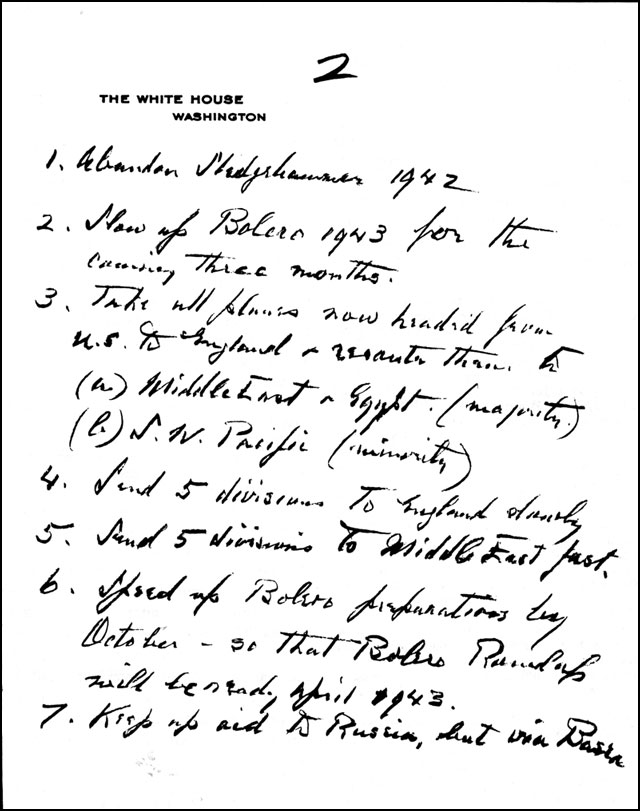 2
THE WHITE HOUSE
WASHINGTON
1. Abandon Sledgehammer 1942
2. Slow up Bolero 1943 for the
coming three months.
3. Take all planes now headed from
U.S. to England & reroute them to
(a) Middle East & Egypt. (majority)
(b) S.W. Pacific (minority)
4. Send 5 divisions to England slowly
5. Send 5 divisions to Middle East fast.
6. Speed up Bolero preparations by
October - so that Bolero Roundup
will be ready April 1943.
7. Keep up aid to Russia, but via Basra